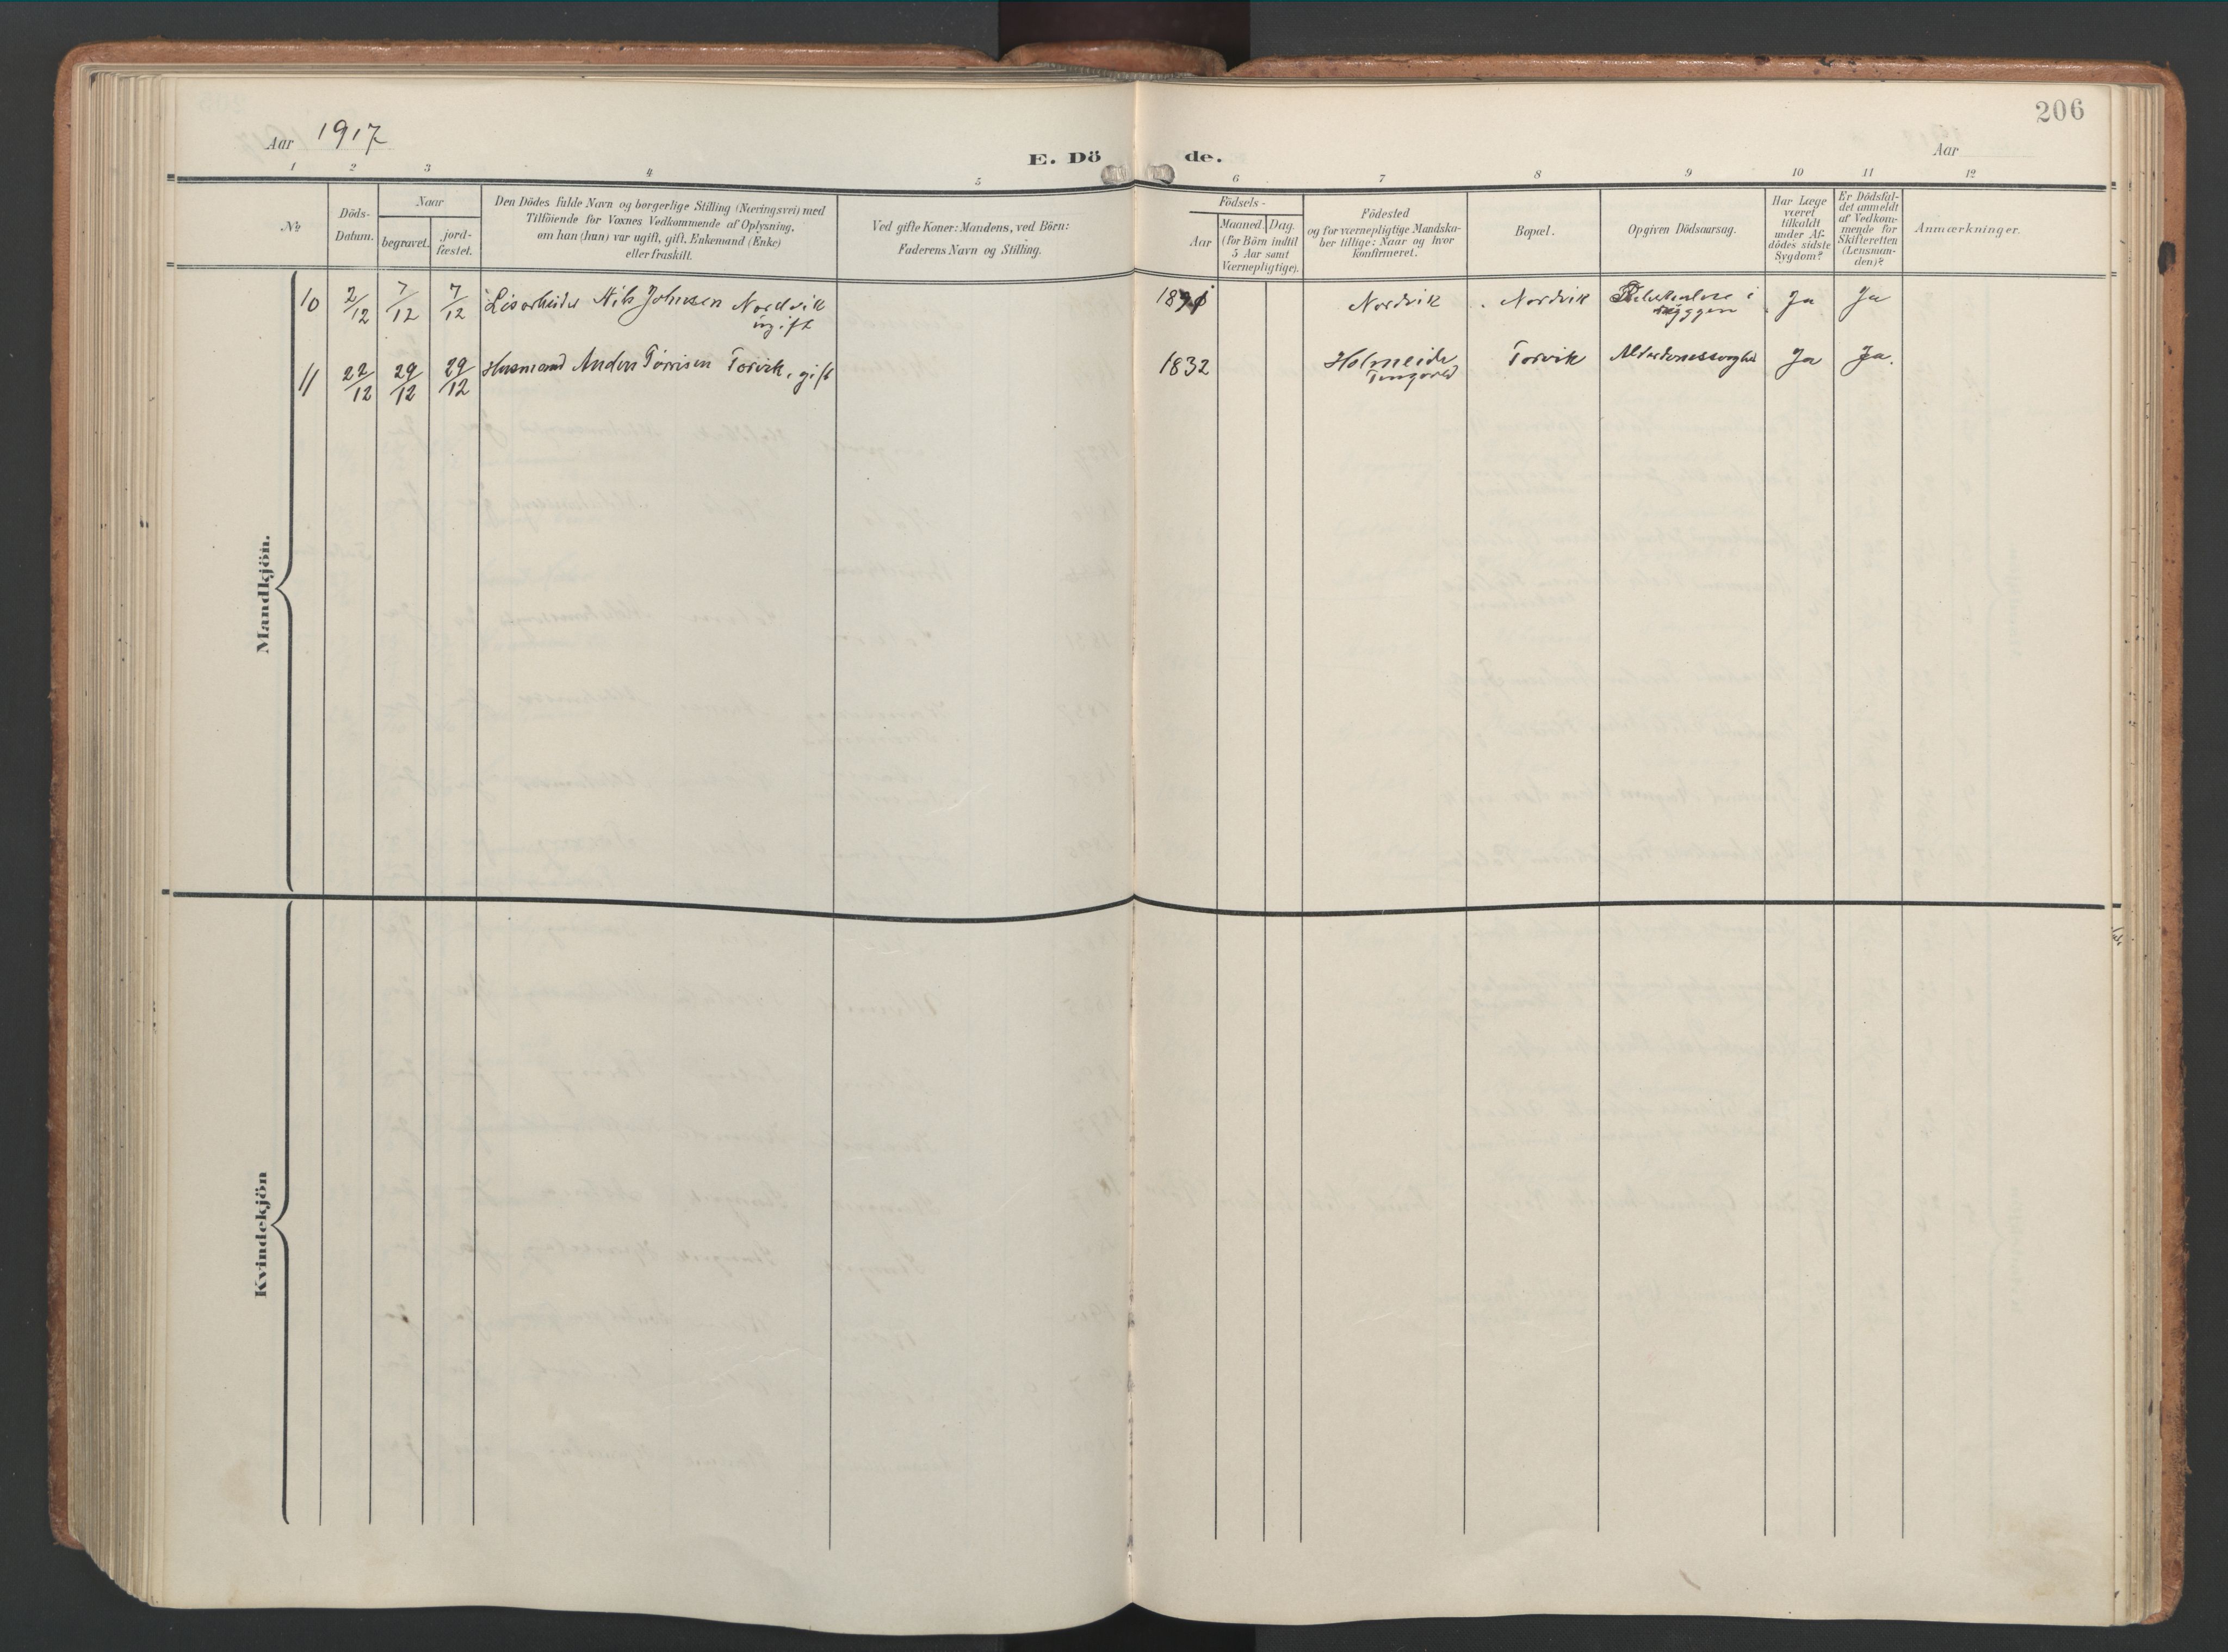 206
Aar 1917
E. Dö de.
Aar
1 2 3 4 5 6 7 8 9 10 11 12
No
Döds-
Datum.
Naar
begravet.
jord-
fæstet.
Den Dödes fulde Navn og borgerlige Stilling (Næringsvei) med
Tilföiende for Voxnes Vedkommende af Oplysning,
om han (hun) var ugift, gift, Enkemand (Enke)
eller fraskilt.
Ved gifte Koner: Mandens, ved Börn:
Faderens Navn og Stilling.
Födsels-
Aar
Maaned. Dag.
(for Börn indtil
5 Aar samt
Værnepligtige).
Födested
og for værnepligtige Mandska-
ber tillige: Naar og hvor
konfirmeret.
Bopæl.
Opgiven Dödsaarsag.
Har Læge
været
tilkaldt
under Af-
dödes sidste
Sygdom?
Er Dödsfal-
det anmeldt
af Vedkom-
mende for
Skifteretten
(Lensman-
den)?
Anmærkninger.
Mandkjön.
10 2/12 7/12 7/12 Løsarbeider Nils Johnsen Nordvik Nordvik Nordvik i Ja Ja
ugift ryggen
11 22/12 29/12 29/12 Husmand Anders Torvik, gift 1832 Holmeide Torvik Ja Ja.
Tingvold
Kvindekjön